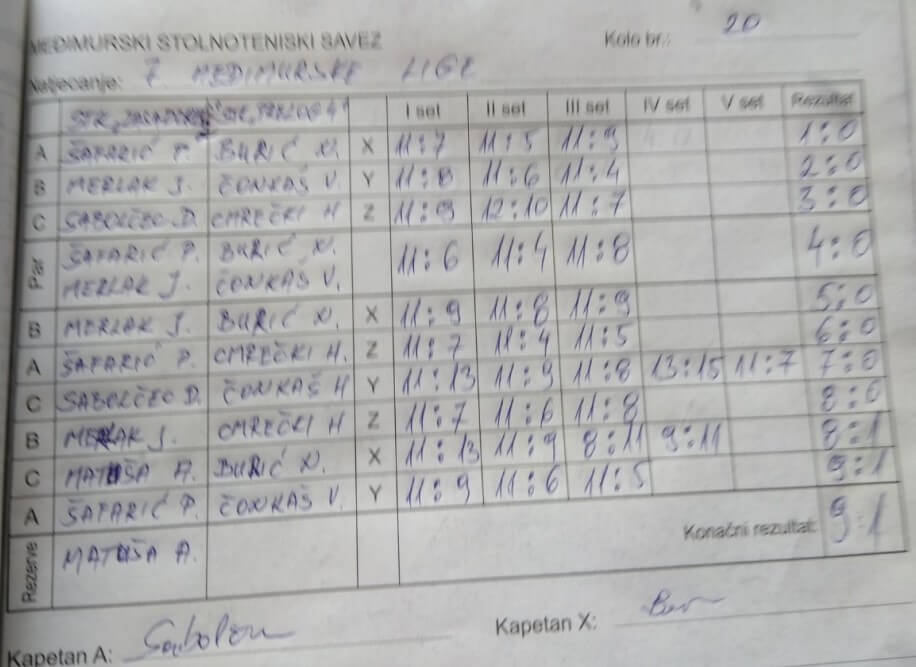 MEĐIMURSKI STOLNOTENISKI SAVEZ Kolo br.: 20
Natjecanje: 7. MEĐIMURSKE LIGE
I set II set III set IV set V set Rezultat
A ŠAFARIĆ P. BURIĆ N. X 11:7 11:5 11:9 1:0
B MERLAK J. ČONKAŠ V. Y 11:8 11:6 11:4 2:0
C SABOLČEO D. CMREČKI H Z 11:9 12:10 11:7 3:0
Par ŠAFARIĆ P. BURIĆ N. 11:6 11:4 11:8 4:0
MERLAK J. ČONKAŠ V.
B MERLAK J. BURIĆ N. X 11:9 11:8 11:9 5:0
A ŠAFARIĆ P. CMREČKI H. Z 11:7 11:4 11:5 6:0
C SABOLČEO D. ČONKAŠ H Y 11:13 11:9 11:8 13:15 11:7 7:0
B MERLAK J. CMREČKI H Z 11:7 11:6 11:8 8:0
C MATUŠA A. BURIĆ N. X 11:13 11:9 8:11 9:11 8:1
A ŠAFARIĆ P. ČONKAŠ V. Y 11:9 11:6 11:5 9:1
Rezerve MATUŠA A. Konačni rezultat: 9:1
Kapetan A: Kapetan X: